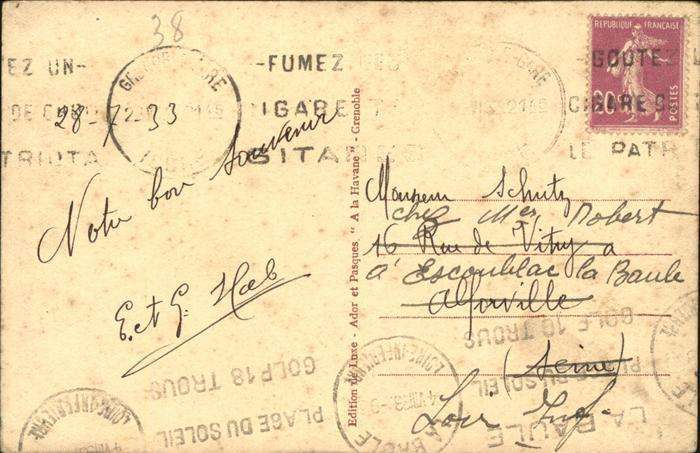 38
EZ UN-
-FUMEZ
-GOUTEZ L
REPUBLIQUE FRANÇAISE
20
POSTES
GARE
GARE
2145
28 7 33
IGARE
CIGARE
TRIUTA
GITAN
LE PATR
Notre bon souvenir
E. et G.
Edition de Luxe - Ador et Pasques "A la Havane" - Grenoble
Monsieur Schutz
chez Mer Robert
16 Rue de Vitry a
à Escoublac la Baule
Alforville
(Seine)
Loir Inf.
LA BAULE
PLAGE DU SOLEIL
GOLF 18 TROUS
PLAGE DU SOLEIL
GOLF 18 TROUS
LOIRE-INFERIEURE
LA BAULE
LOIRE-INFERIEURE